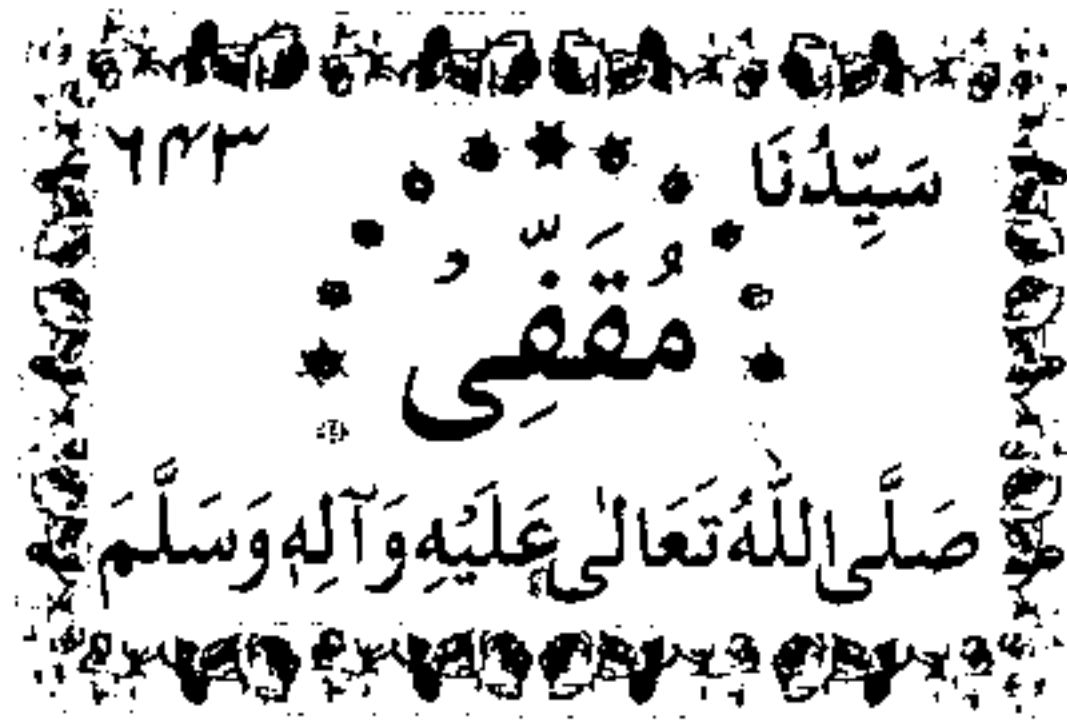 سَيِّدُنَا ٦٤٣
مُقَفِّىْ
صَلَّى اللّٰهُ تَعَالٰى عَلَيْهِ وَآلِهٖ وَسَلَّمَ